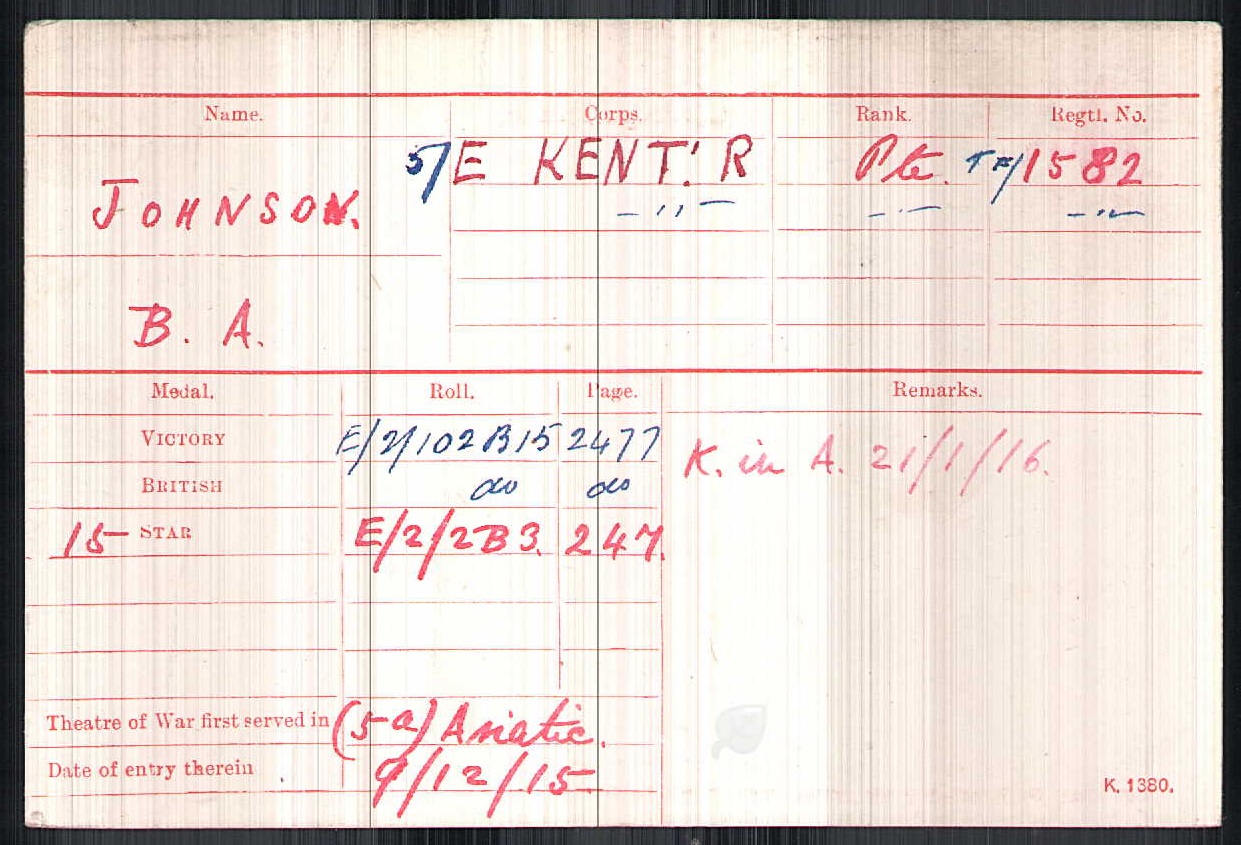 Name. Corps. Rank. Regtl. No.
JOHNSON. 5/E KENT. R Pte. TF/1582
– ,, – – ,, – – ,, –
B. A.
Medal. Roll. Page. Remarks.
VICTORY E/2/102B15 2477 K. in A. 21/1/16.
BRITISH do do
15 STAR E/2/2B3. 247.
Theatre of War first served in (5a) Asiatic.
Date of entry therein 9/12/15
K. 1380.